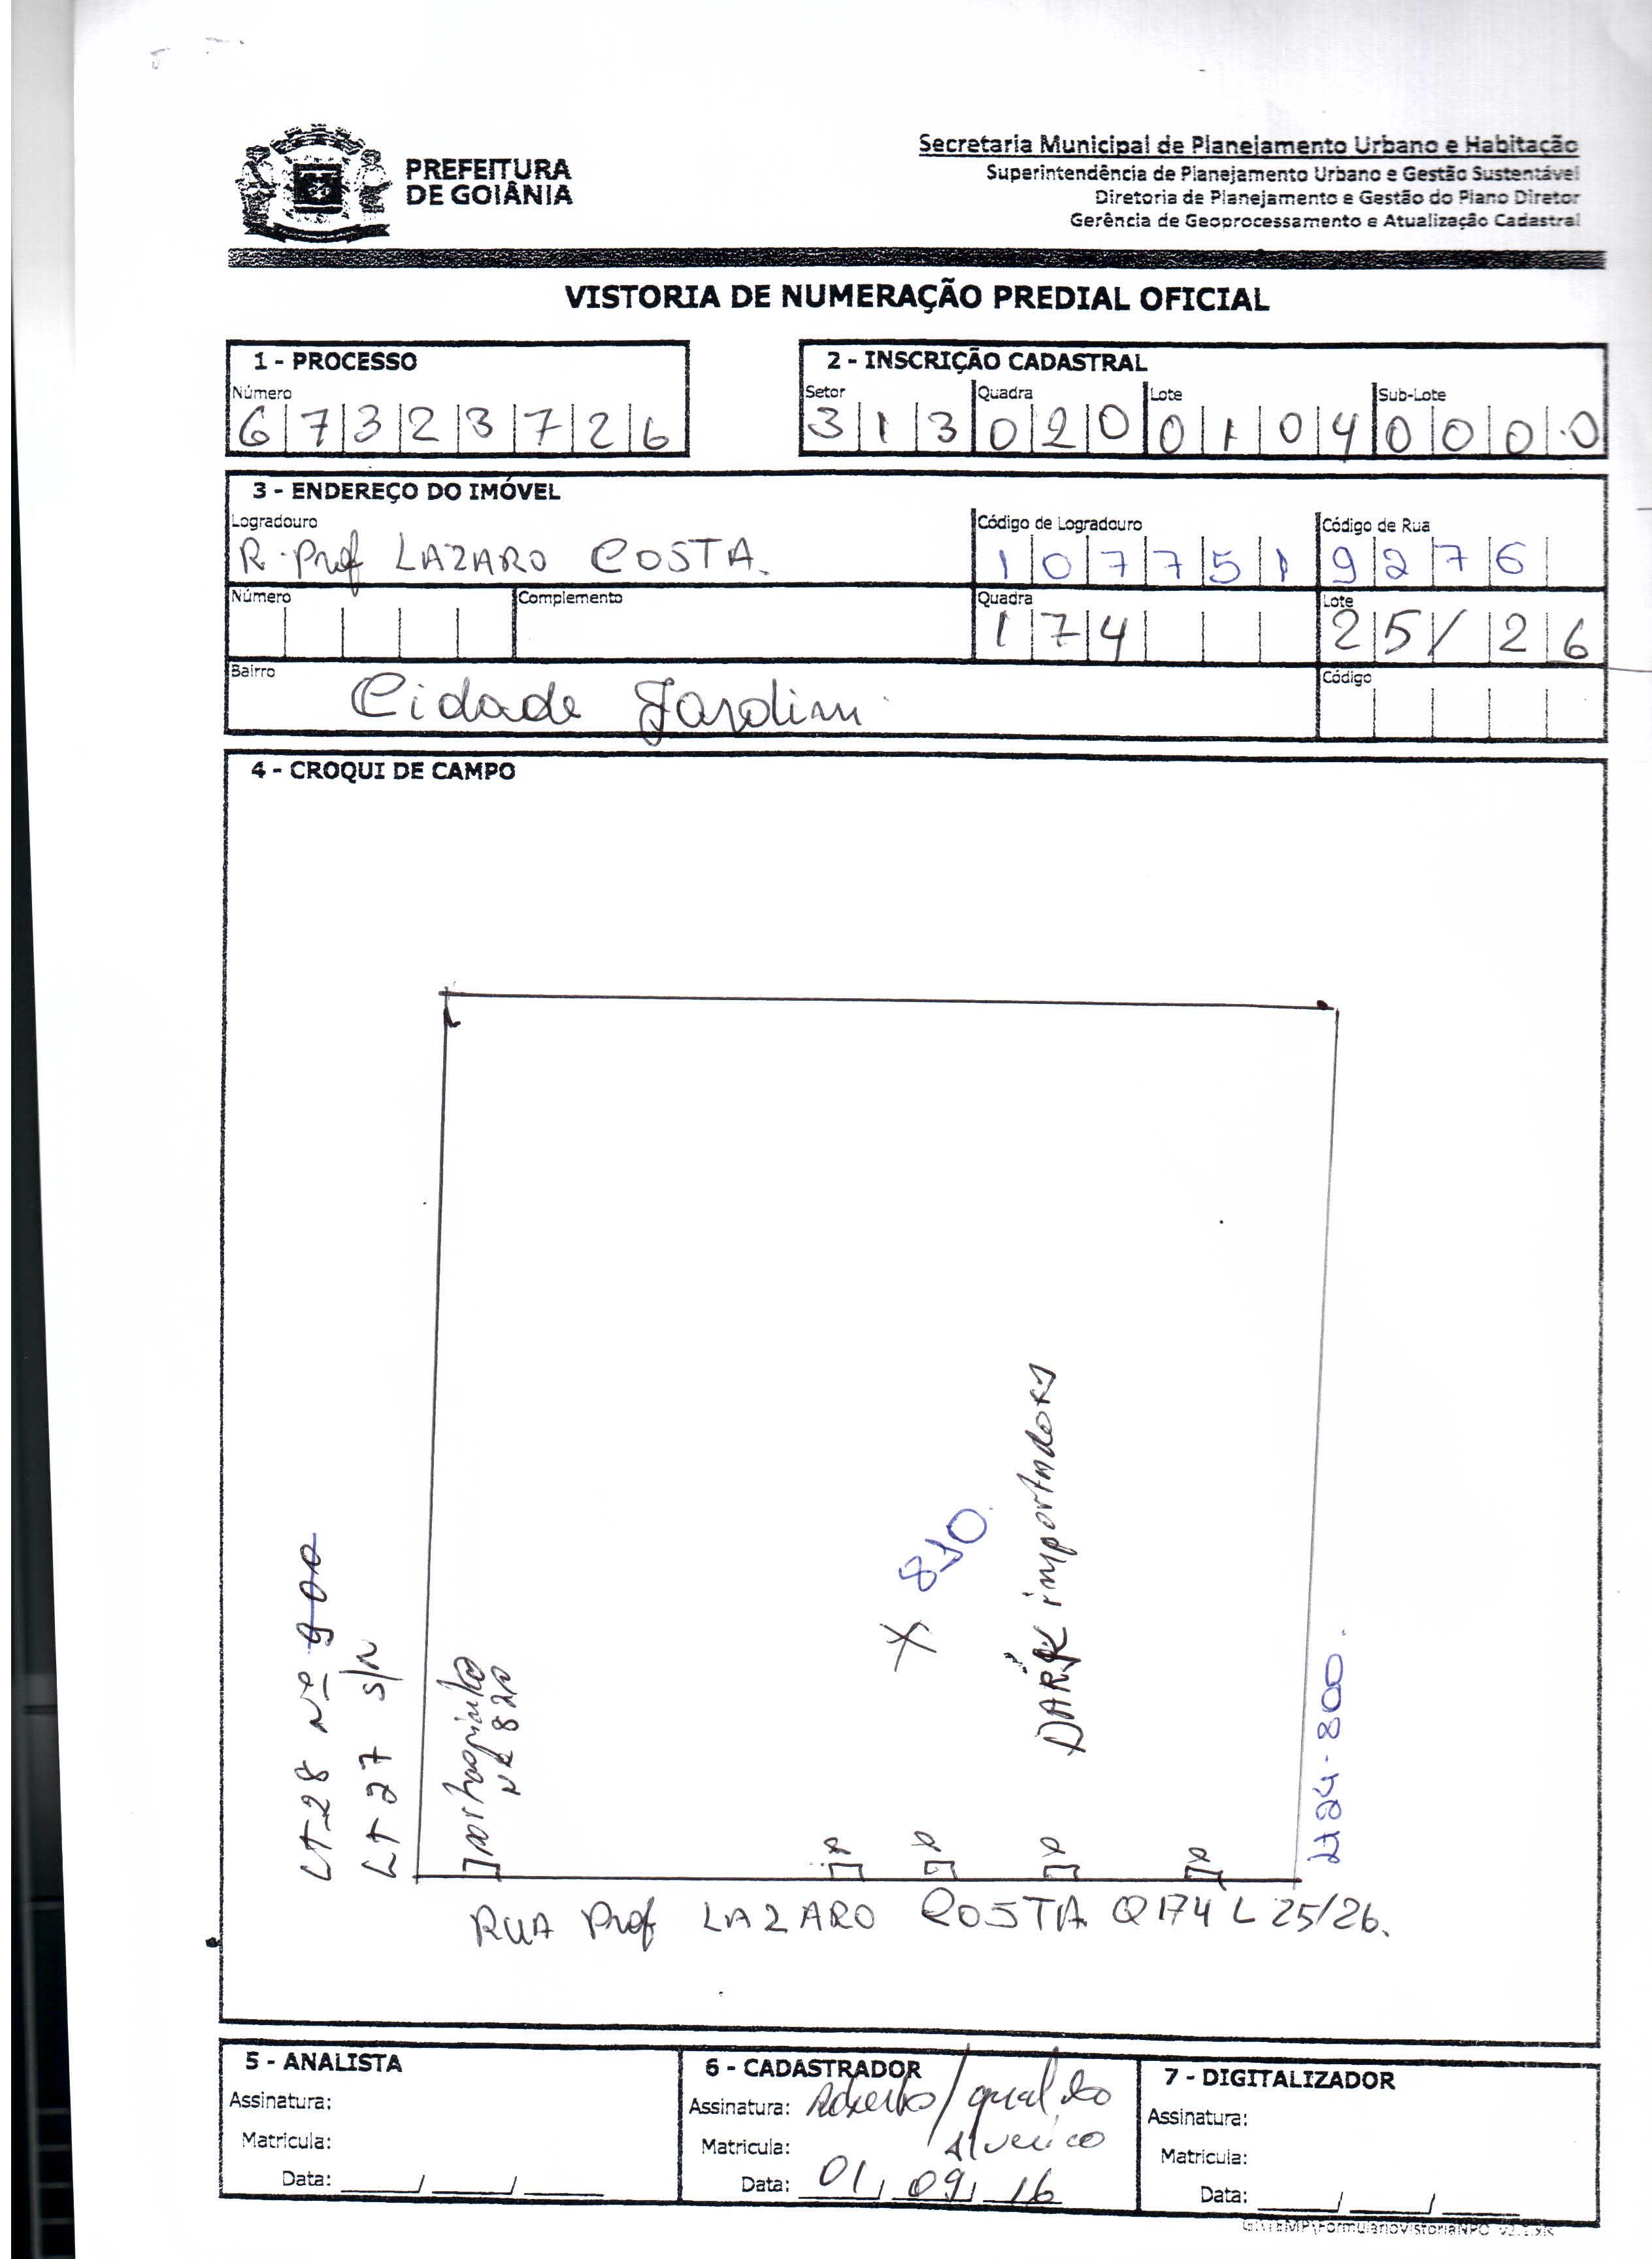 PREFEITURA
DE GOIÂNIA
Secretaria Municipal de Planejamento Urbano e Habitação
Superintendência de Planejamento Urbano e Gestão Sustentável
Diretoria de Planejamento e Gestão do Plano Diretor
Gerência de Geoprocessamento e Atualização Cadastral
VISTORIA DE NUMERAÇÃO PREDIAL OFICIAL
1 - PROCESSO
Número
67323726
2 - INSCRIÇÃO CADASTRAL
Setor Quadra Lote Sub-Lote
313 020 0104 0000
3 - ENDEREÇO DO IMÓVEL
Logradouro Código de Logradouro Código de Rua
R. Prof LAZARO COSTA. 107751 9276
Número Complemento Quadra Lote
174 25/26
Bairro Código
Cidade Jardim
4 - CROQUI DE CAMPO
LT-28 Nº 900
LT 27 S/N
Nº 820
X 810
DARK importadora
Lt 24-800.
RUA Prof LAZARO COSTA Q174 L 25/26.
5 - ANALISTA
Assinatura:
Matricula:
Data: ____/____/____
6 - CADASTRADOR
Assinatura:
Matricula:
Data: 01/09/16
7 - DIGITALIZADOR
Assinatura:
Matricula:
Data: ____/____/____
G:\TEMP\FormularioVistoriaNPO_v2.1.xls